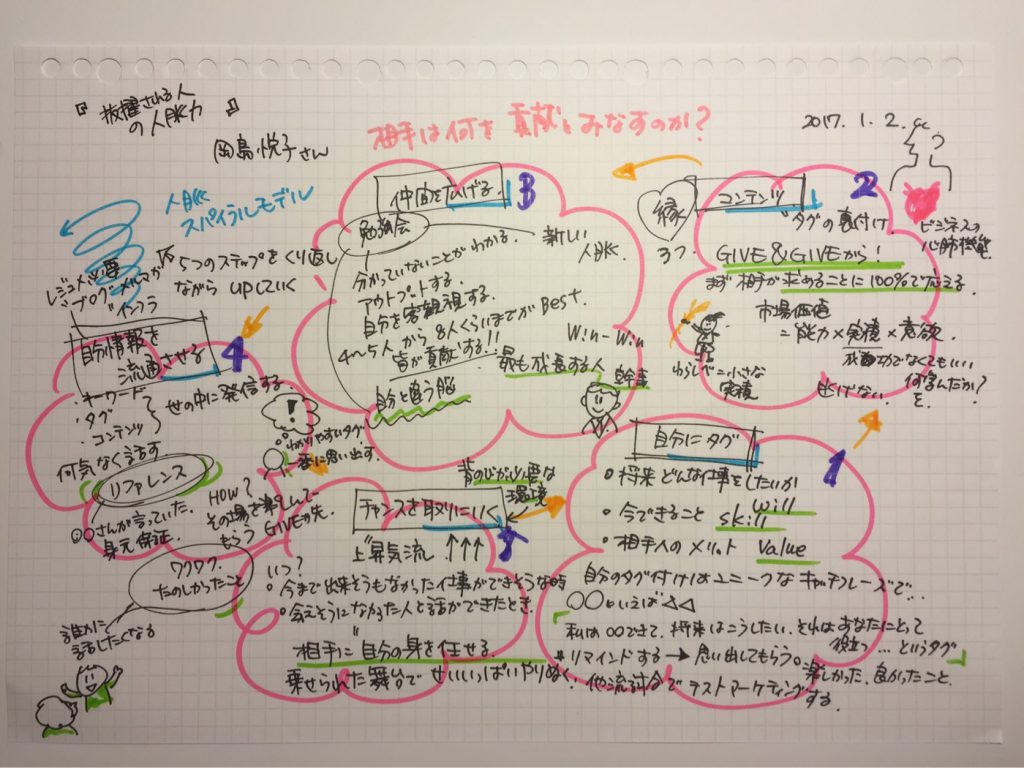 『抜擢される人
の人脈力』
岡島悦子さん
相手は何を貢献とみなすのか？
2017.1.2.
人脈
スパイラルモデル
5つのステップをくり返し
ながら UPしていく
仲間を広げる
3
勉強会
新しい
人脈
分かっていないことがわかる.
アウトプットする.
自分を客観視する.
4〜5人から8人くらいまでがBest.
皆が貢献する!!
Win-Win
最も成長する人 幹事
自分と違う脳
縁
3つ
コンテンツ
2
タグの裏付け
GIVE&GIVEから!
まず相手が求めることに100%で応える.
市場価値
=能力×実績×意欲
成功でなくてもいい
何を学んだか?
を.
わらしべ=小さな
実績
逃げない
ビジネスの
心肺機能.
ブログ・メルマガ
インフラ
自分情報を
流通させる
4
・キーワード
・タグ
・コンテンツ
世の中に発信する
何気なく話す
リファレンス
〇〇さんが言っていた.
身元保証.
HOW?
その場を楽しんで
もらう GIVEが先.
ワクワク.
たのしかったこと
誰かに
話したくなる
!
わかりやすいタグ
一番に思い出す.
背のびが必要な
環境
チャンスを取りにいく
5
上昇気流 ↑↑↑
いつ?
・今まで出来そうもなかった仕事ができそうな時
・会えそうになかった人と話ができたとき.
相手に自分の身を任せる.
乗せられた舞台で せいいっぱいやりぬく.
自分にタグ
1
・将来どんな仕事をしたいか will
・今できること skill
・相手人のメリット value
自分のタグ付けはユニークなキャチフレーズで...
〇〇といえば△△
「私は〇〇できて、将来はこうしたい、それはあなたにとって
役立つ…というタグ」
*リマインドする→思い出してもらう。楽しかった、良かったこと.
他流試合でテストマーケティング
する.